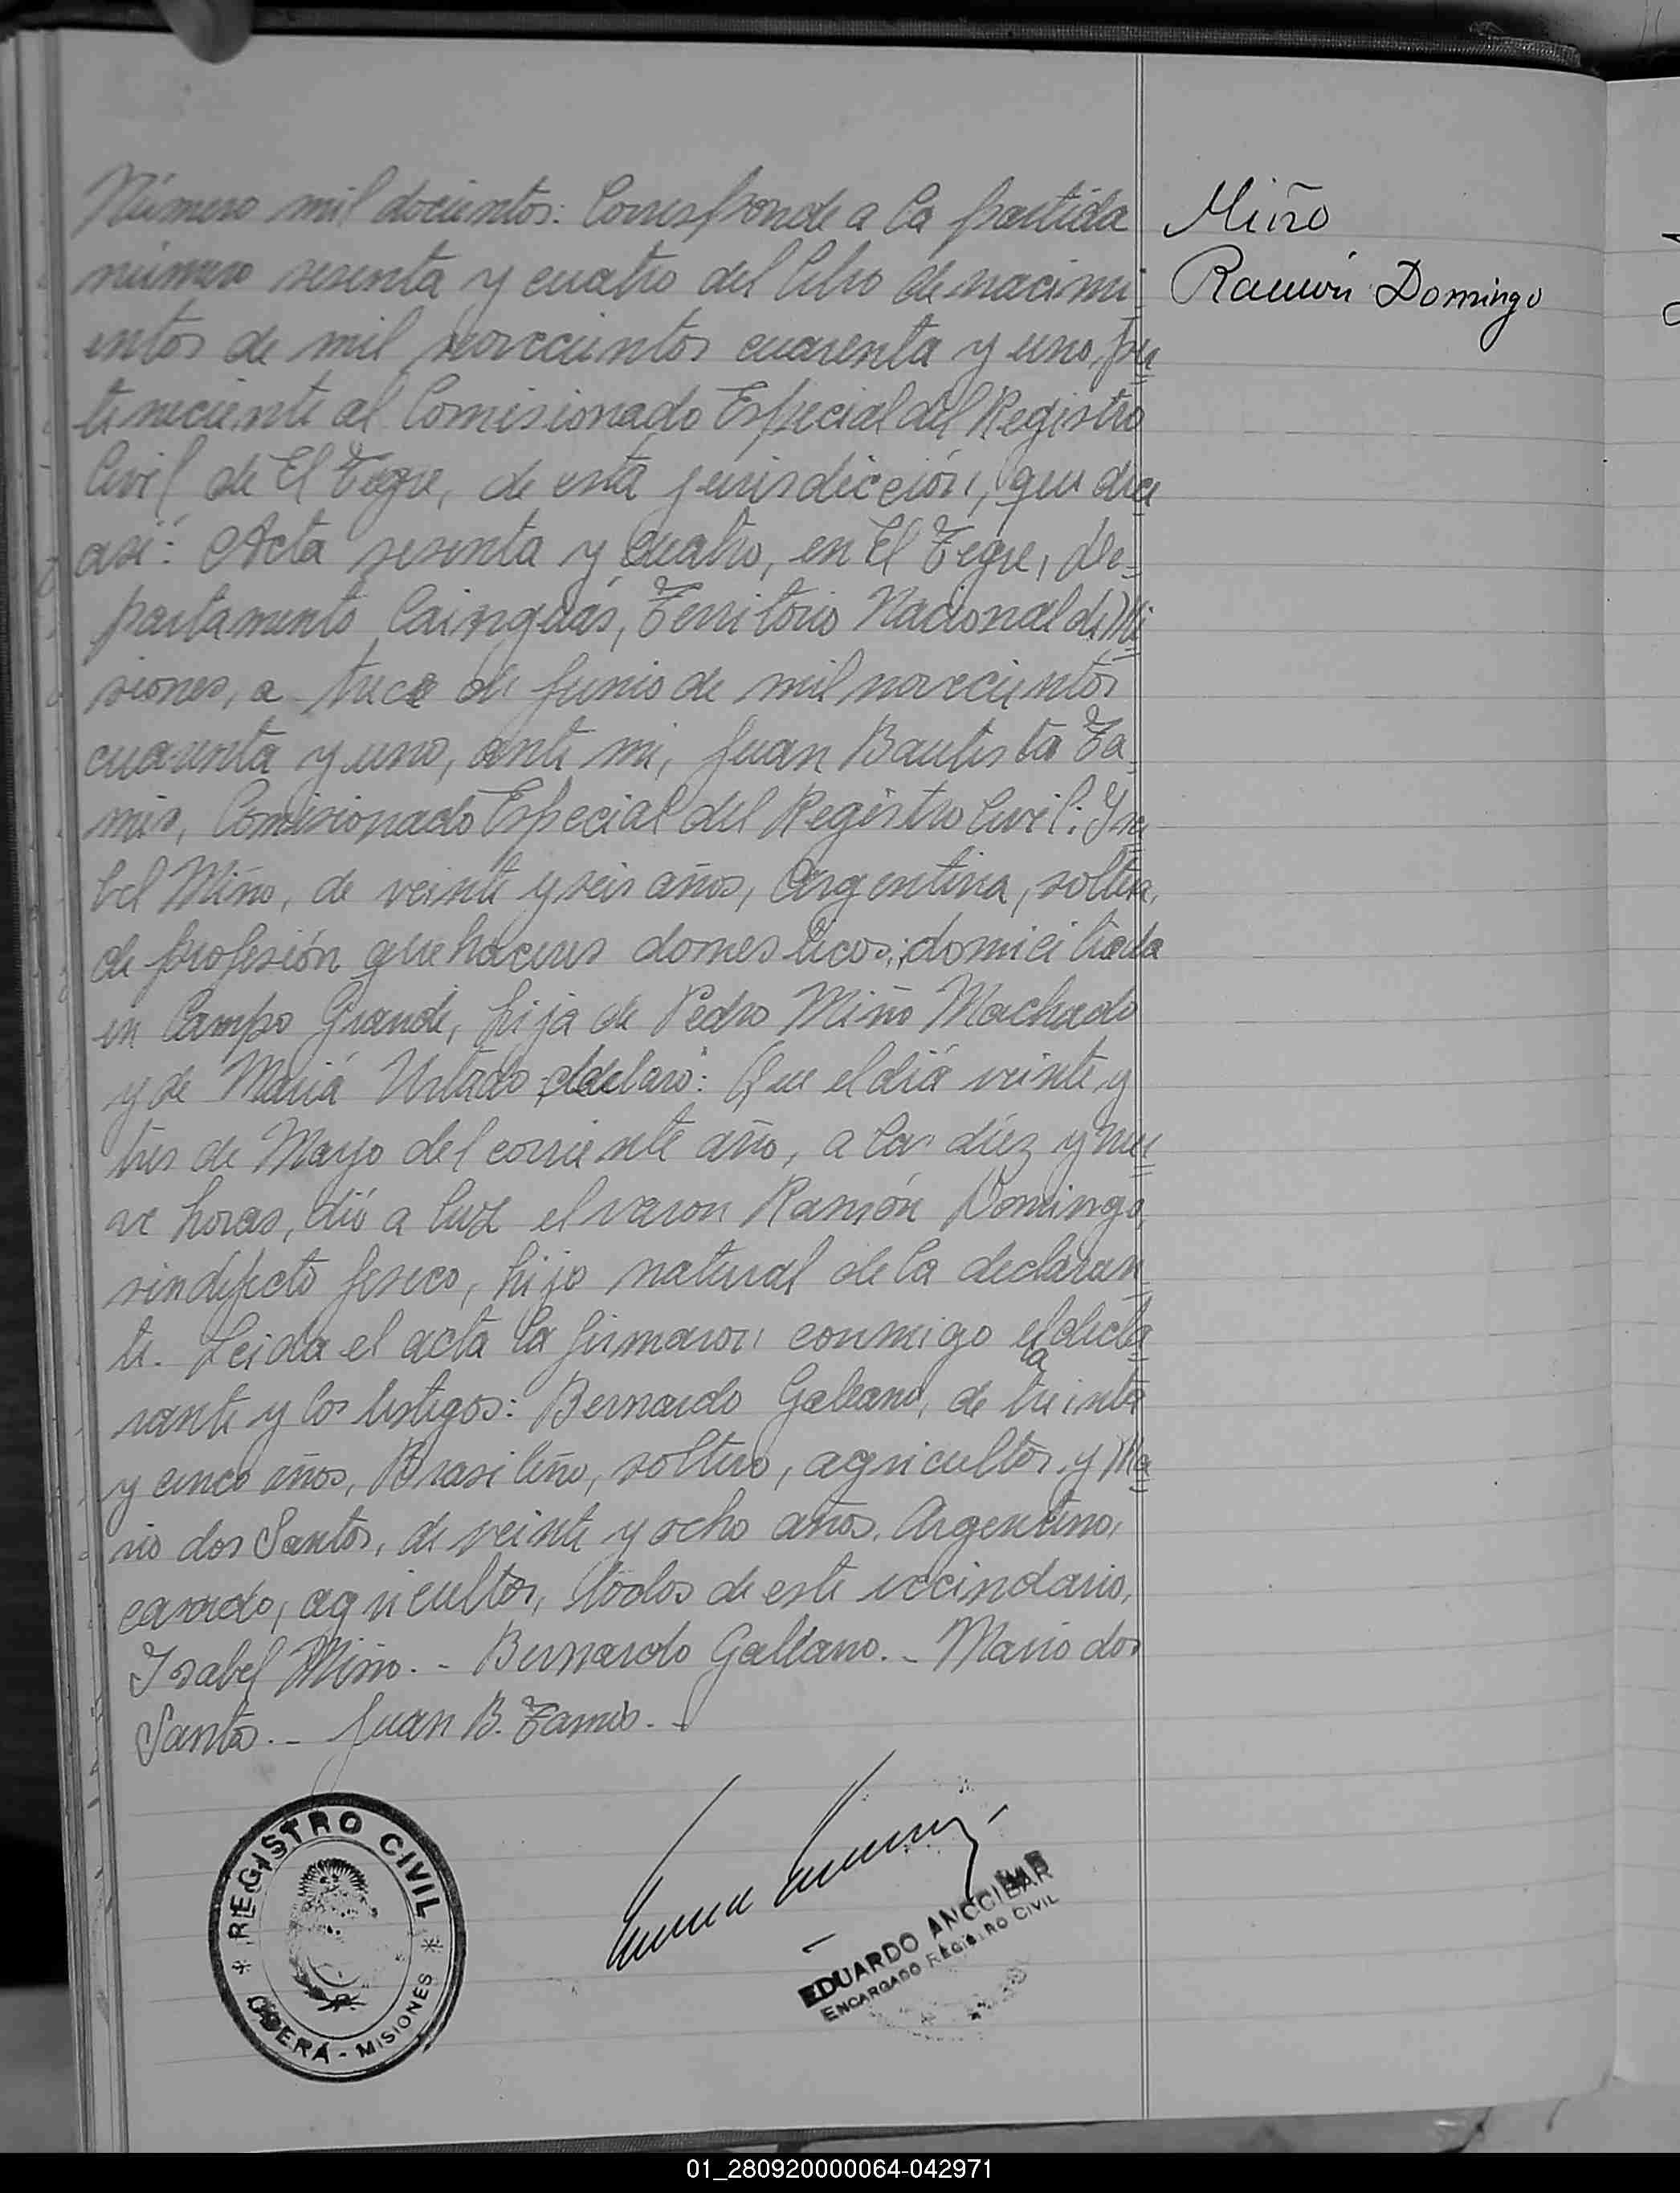 Número mil docientos: Corresponde a la partida
número sesenta y cuatro del libro de nacimi-
entos de mil novecientos cuarenta y uno, per=
teneciente al Comisionado Especial del Registro
Civil de El Tigre, de esta jurisdicción, que dice
así: Acta sesenta y cuatro, en El Tigre, De=
partamento Cainguás, Territorio Nacional de Mi=
siones, a trece de junio de mil novecientos
cuarenta y uno, ante mi, Juan Bautista Ta=
mis, Comisionado Especial del Registro Civil: Isa=
bel Miño, de veinte y seis años, Argentina, soltera,
de profesión quehaceres domesticos; domiciliada
en Campo Grande, hija de Pedro Miño Machado
y de María Urtado, declaró: Que el día veinte y
tres de Mayo del corriente año, a las diez y nue=
ve horas, dió a luz el varon Ramón Domingo,
sin defecto fisico, hijo natural de la declaran=
te. Leida el acta la firmaron conmigo el decla=
a
rante y los testigos: Bernardo Galeano, de treinta
y cinco años, Brasileño, soltero, agricultor, y Ma=
rio dos Santos, de veinte y ocho años, Argentino,
casado, agricultor, todos de este vecindario.
Isabel Miño. - Bernardo Galeano. - Mario dos
Santos. - Juan B. Tamis. -
Miño
Ramón Domingo
REGISTRO CIVIL
OBERÁ - MISIONES
EDUARDO ANCCIBAR
ENCARGADO REGISTRO CIVIL
01_280920000064-042971